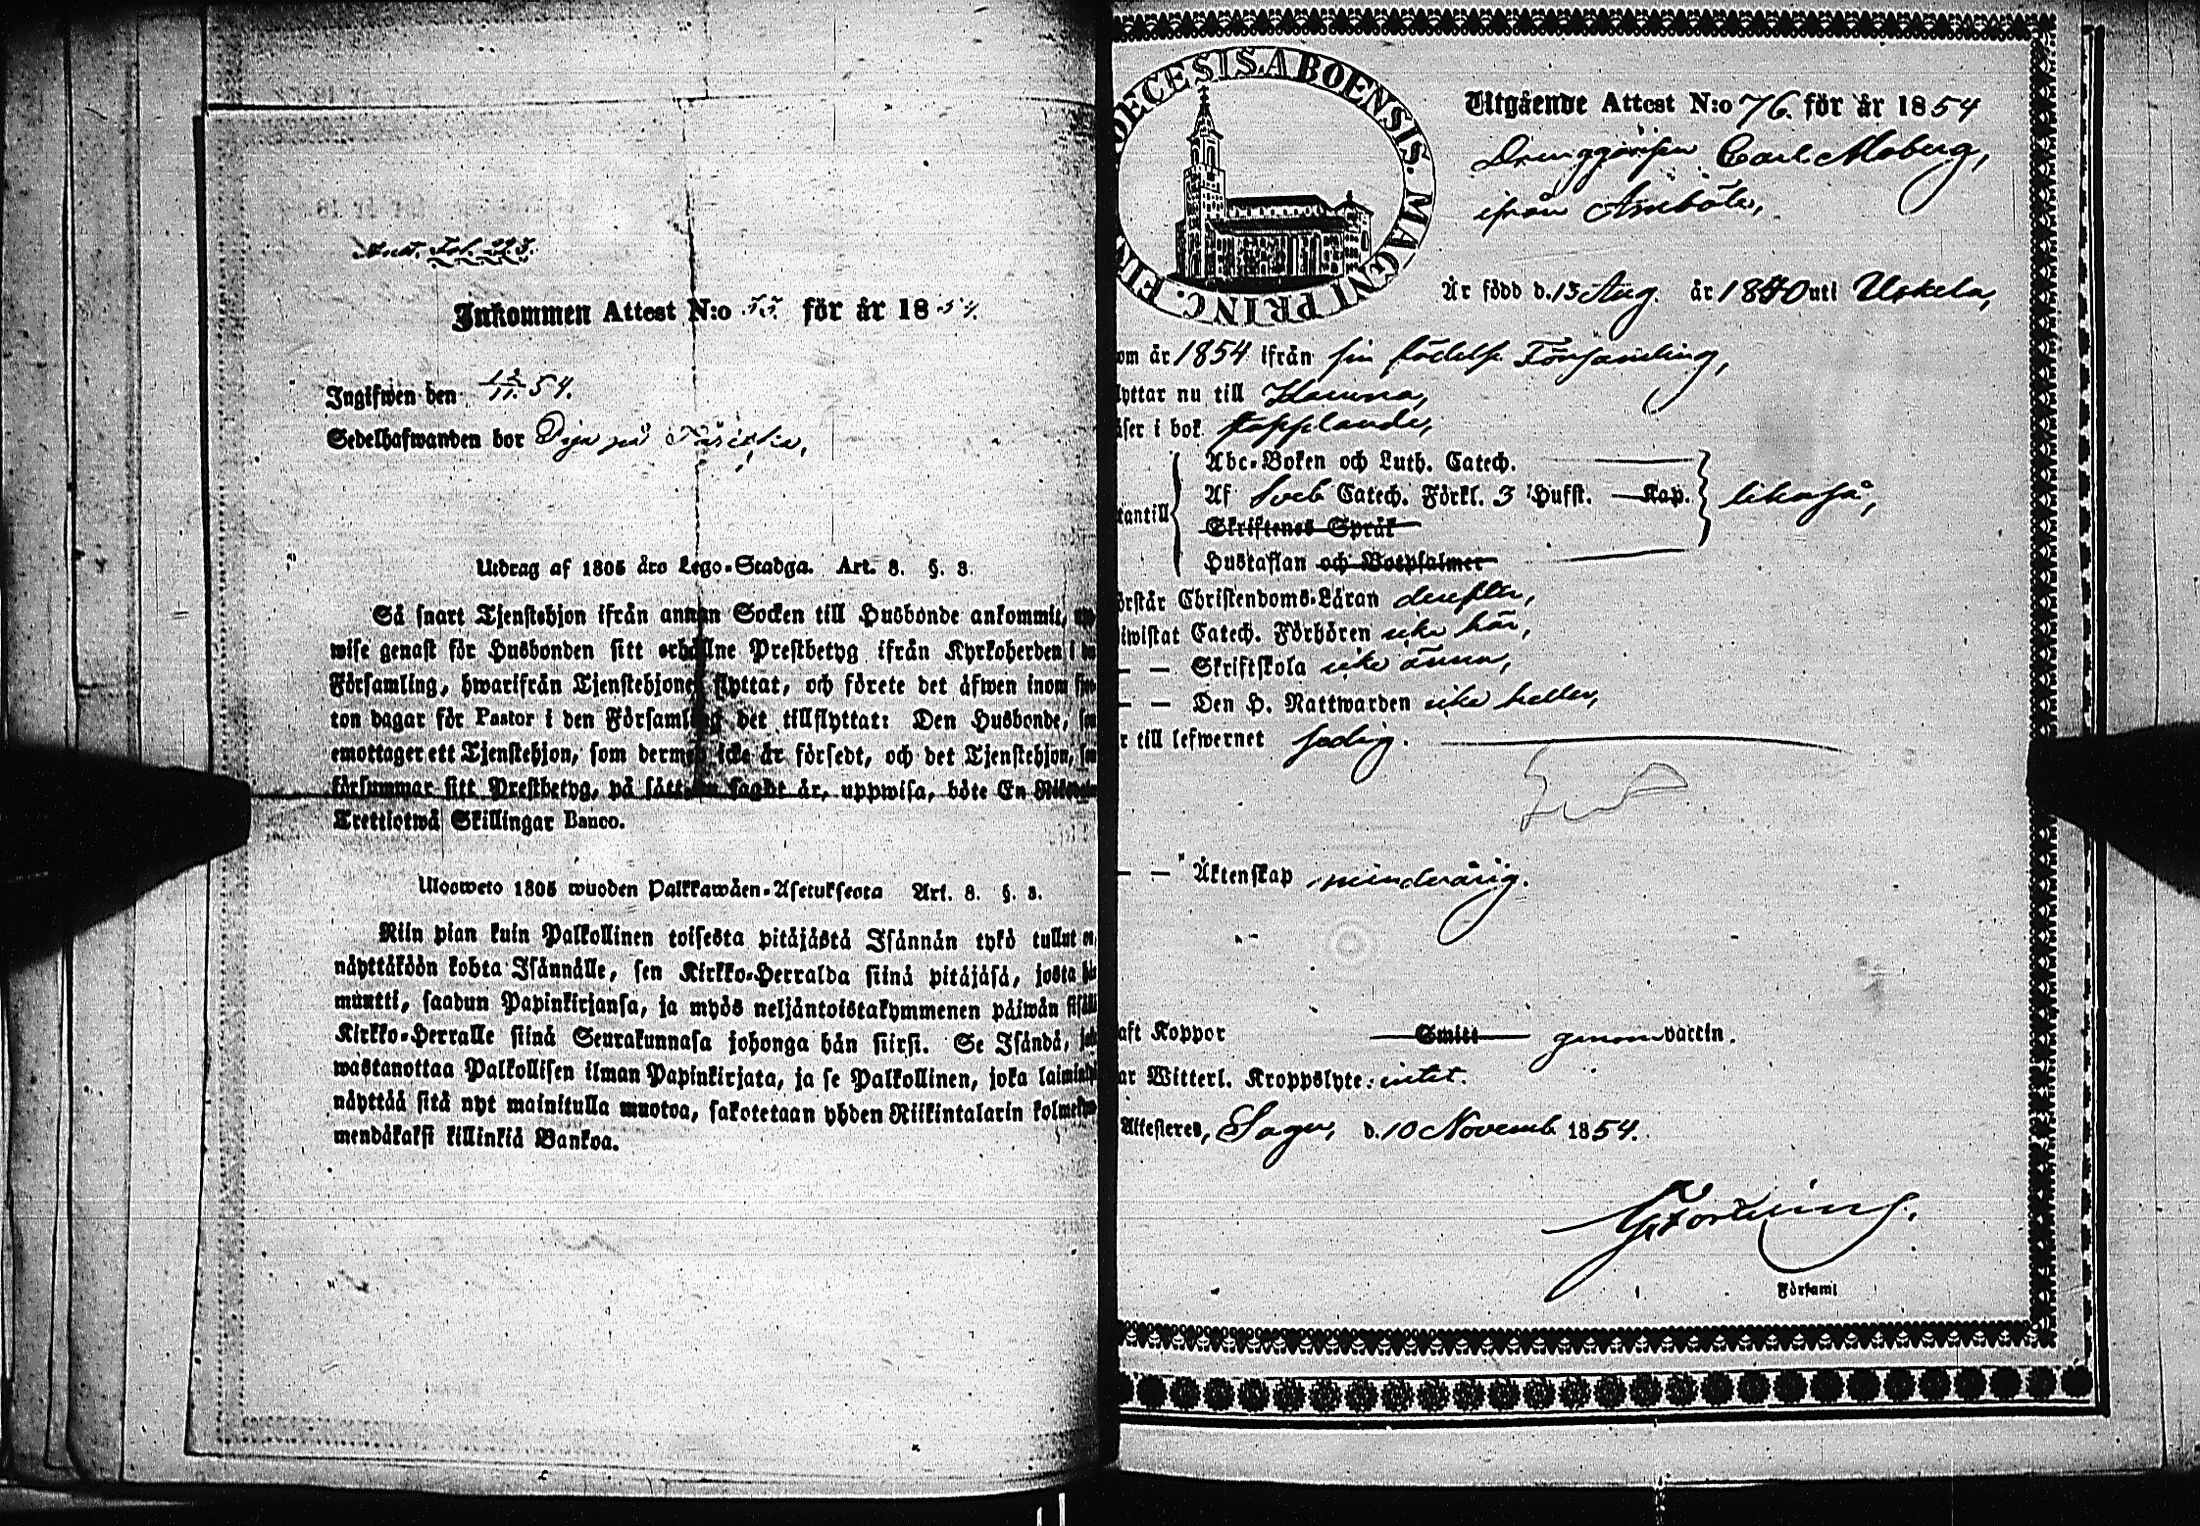 Fol. 223.
Inkommen Attest N:o för år 1854.
Ingifwen den 12/11. 54.
Sedelhafwanden bor Piga på
Utdrag af 1805 års Lego-Stadga. Art. 8. §. 3.
Så snart Tjenstehjon ifrån annan Socken till Husbonde ankommit,
wise genast för Husbonden sitt erhållne Prestbetyg ifrån Kyrkoherden i
Församling, hwarifrån Tjenstehjonet flyttat, och förete det äfwen inom
ton dagar för Pastor i den Församling det tillflyttat: Den Husbonde,
emottager ett Tjenstehjon, som dermed icke är försedt, och det Tjenstehjon,
försummar sitt Prestbetyg, på sätt som sagdt är, uppwisa, böte En
Trettiotwå Skillingar Banco.
Ulosweto 1805 wuoden Palkkawäen-Asetuksesta Art. 8. §. 3.
Niin pian kuin Palkollinen toisesta pitäjästä Isännän tykö tullut on,
näyttäköön kohta Isännälle, sen Kirkko-Herralda siinä pitäjäsä, josta hän
muutti, saadun Papinkirjansa, ja myös neljäntoistakymmenen päiwän sisällä
Kirkko-Herralle siinä Seurakunnasa johonga hän siirsi. Se Isändä,
wastanottaa Palkollisen ilman Papinkirjata, ja se Palkollinen, joka
näyttää sitä nyt mainitulla muotoa, sakotetaan yhden Riikintalarin
mendäkaksi killinkiä Bankoa.
DECESIS ABOENSIS. MAGNI PRINC. FIN
Utgående Attest N:o 76. för år 1854
Drenggåssen Carl Moberg,
ifrån
Är född d. 13 Aug. år 1840 uti Uskela,
om år 1854 ifrån sin födelse Församling,
lyttar nu till
äser i bok stapplande,
Abc-Boken och Luth. Catech.
Af Sveb Catech. Förkl. 3 Hufst. Kap. likaså,
tantill
Skriftenes Språk
Hustaflan och Botpsalmer
örstår Christendoms-Läran derefter,
iwistat Catech. Förhören icke här,
— — Skriftskola icke ännu,
— — Den H. Nattwarden icke heller,
r till lefwernet sedig.
— — Äktenskap minderårig.
aft Koppor Smitt genom vaccin.
ar Witterl. Kroppslyte: intet.
Attesteres, Sagu, d. 10 Novemb. 1854.
Församl